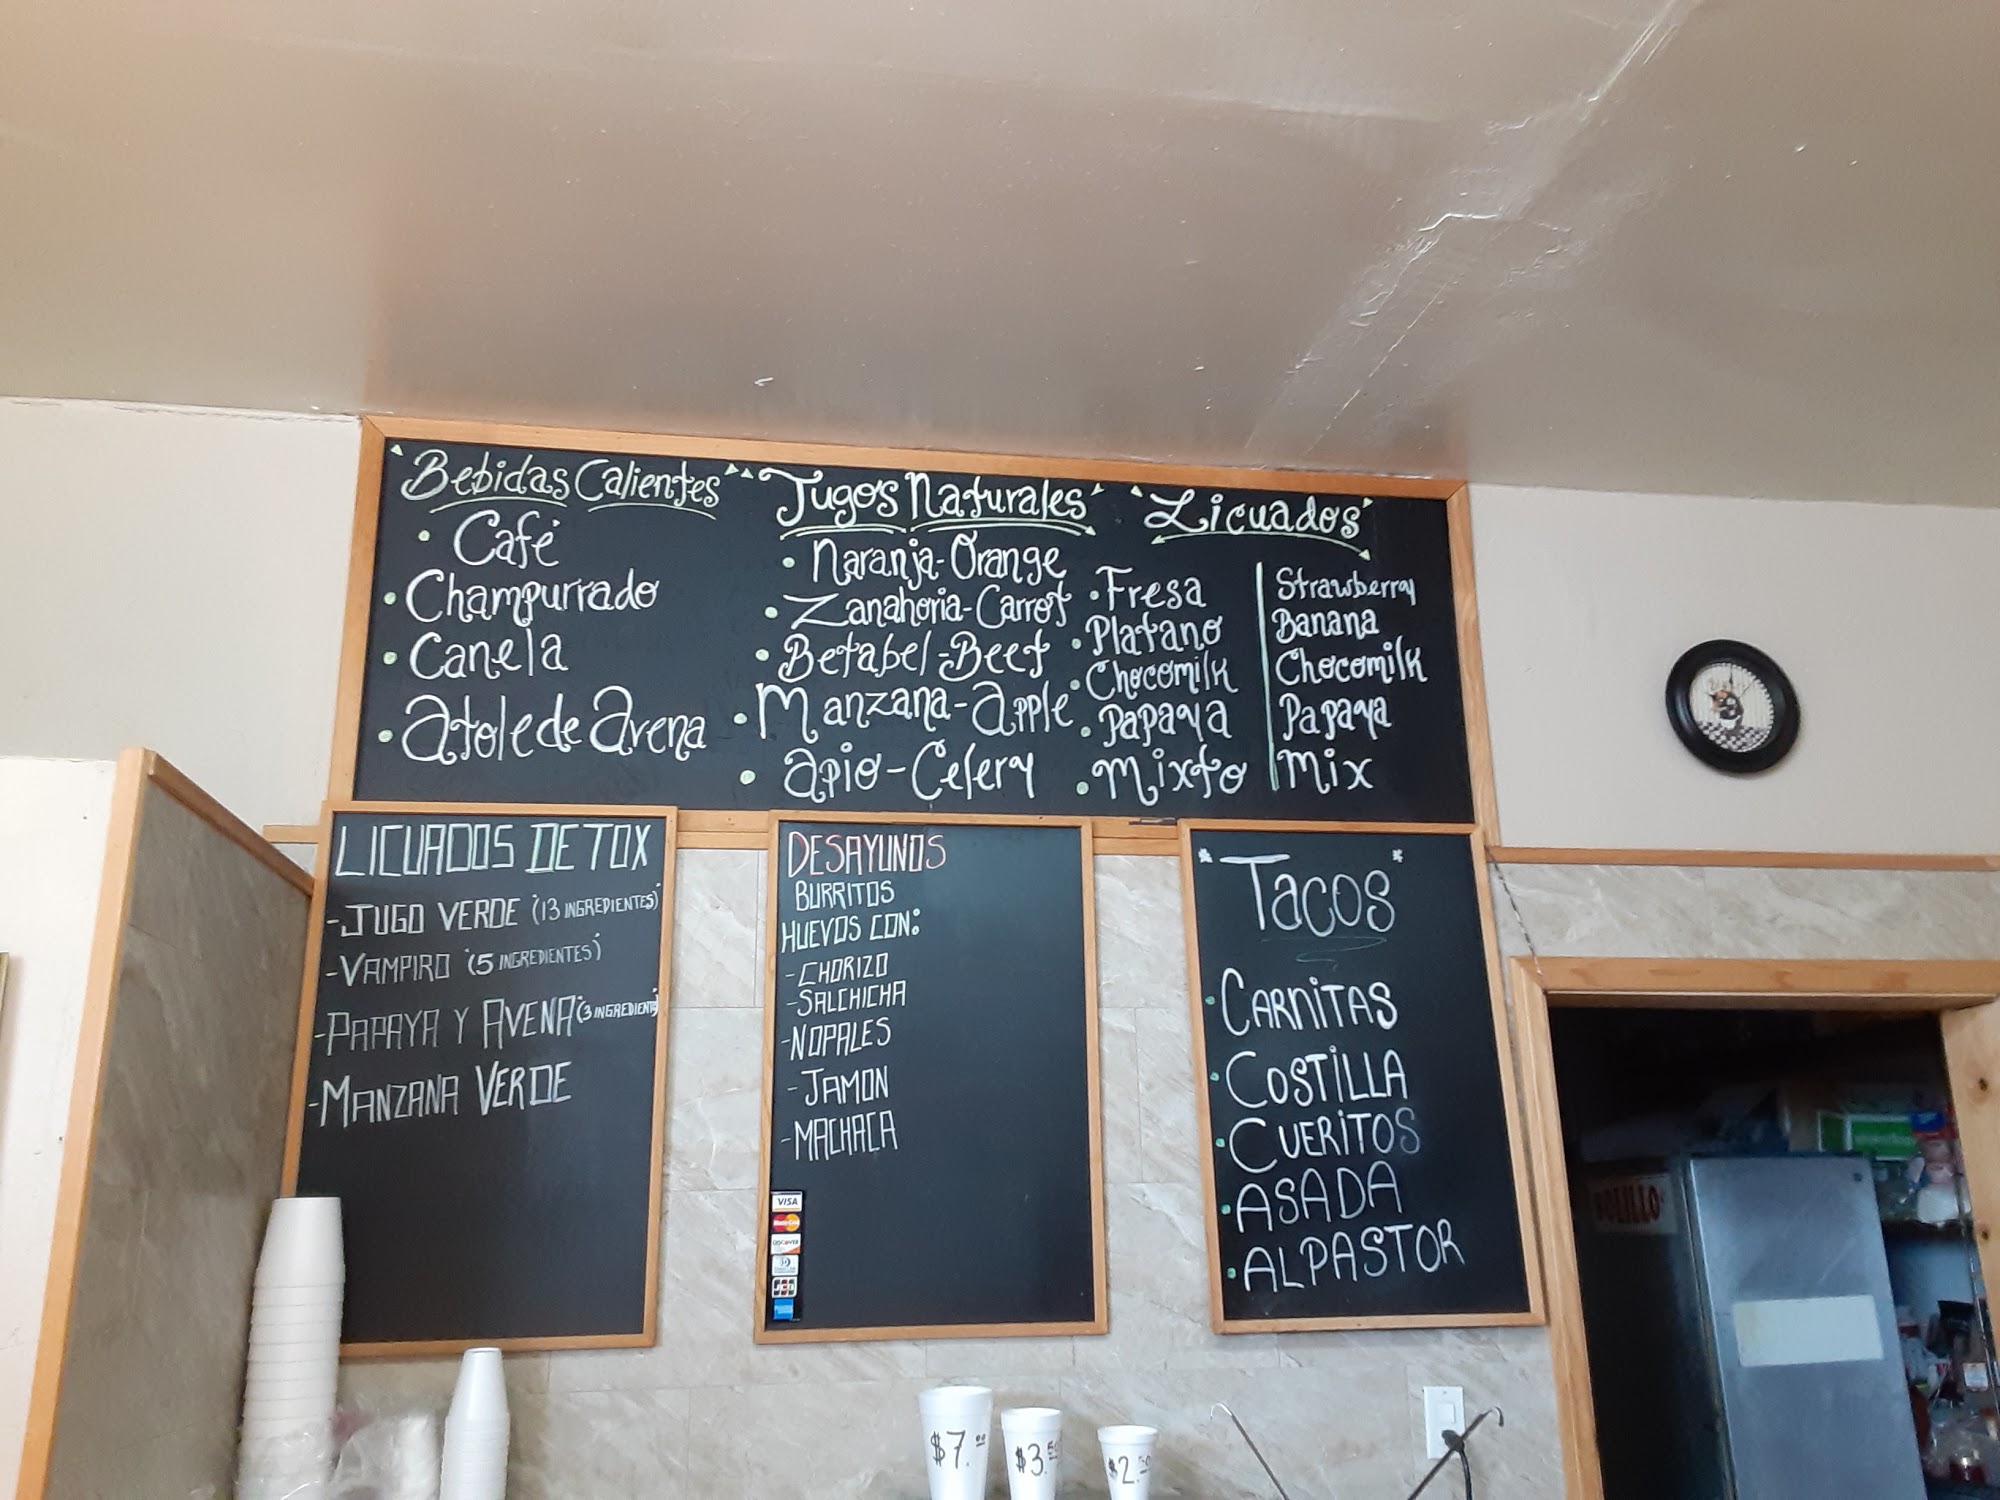 Bebidas Calientes
• Café
• Champurrado
• Canela
• Atole de Avena
Jugos Naturales
• Naranja-Orange
• Zanahoria-Carrot
• Betabel-Beet
• Manzana-Apple
• Apio-Celery
"Licuados"
• Fresa | Strawberry
• Platano | Banana
• Chocomilk | Chocomilk
• Papaya | Papaya
• Mixto | Mix
LICUADOS DETOX
-JUGO VERDE (13 INGREDIENTES)
-VAMPIRO (5 INGREDIENTES)
-PAPAYA Y AVENA (3 INGREDIENT)
-MANZANA VERDE
DESAYUNOS
BURRITOS
HUEVOS CON:
-CHORIZO
-SALCHICHA
-NOPALES
-JAMON
-MACHACA
VISA
MasterCard
DISCOVER
JCB
"TACOS"
• CARNITAS
• COSTILLA
• CUERITOS
• ASADA
• ALPASTOR
BOLILLO
$7.00
$3.50
$2.50